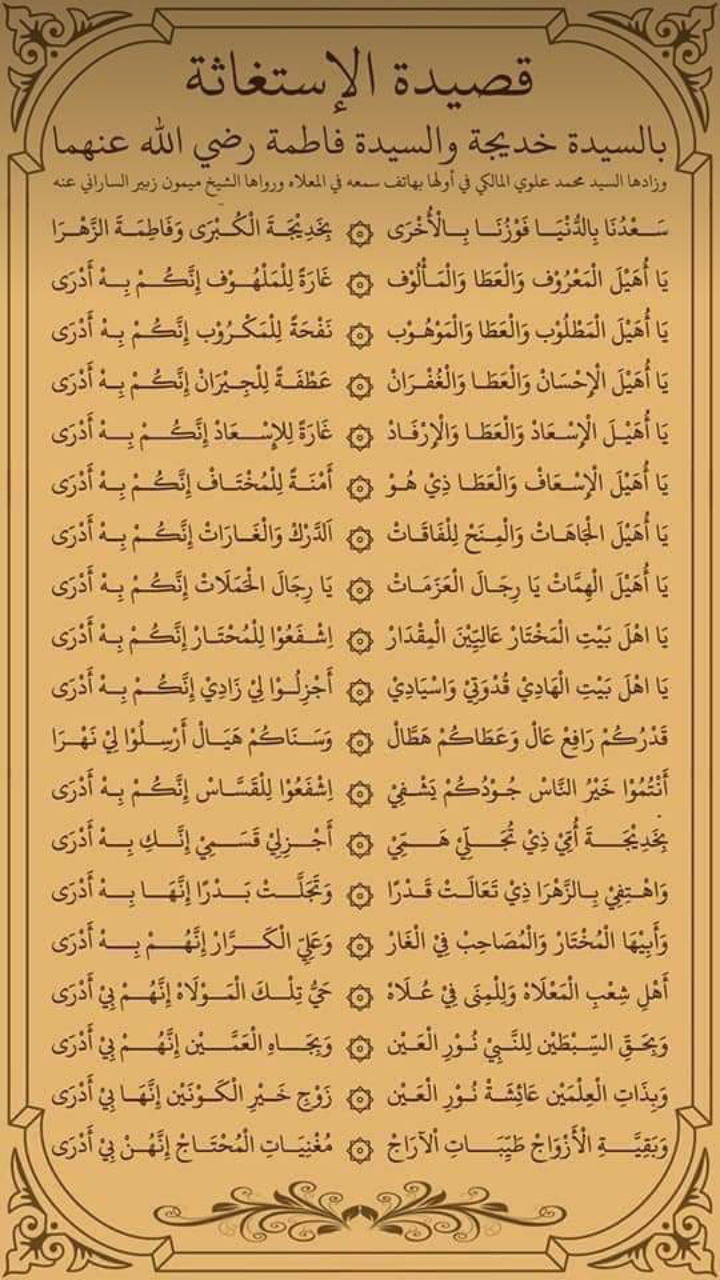 قصيدة الإستغاثة
بالسيدة خديجة والسيدة فاطمة رضي الله عنهما
وزادها السيد محمد علوي المالكي في أولها بهاتف سمعه في المعلاه ورواها الشيخ ميمون زبير الساراني عنه
سَعْدُنَا بِالدُّنْيَا فَوْزُنَا بِالْأُخْرَى ۞ بِخَدِيْجَةَ الْكُبْرَى وَفَاطِمَةَ الزَّهْرَا
يَا أُهَيْلَ الْمَعْرُوْف وَالْعَطَا وَالْمَأْلُوْف ۞ غَارَةً لِلْمَلْهُوْف إِنَّكُمْ بِهْ أَدْرَى
يَا أُهَيْلَ الْمَطْلُوْب وَالْعَطَا وَالْمَوْهُوْب ۞ نَفْحَةً لِلْمَكْرُوْب إِنَّكُمْ بِهْ أَدْرَى
يَا أُهَيْلَ الْإِحْسَانْ وَالْعَطَا وَالْغُفْرَانْ ۞ عَطْفَةً لِلْجِيْرَانْ إِنَّكُمْ بِهْ أَدْرَى
يَا أُهَيْلَ الْإِسْعَادْ وَالْعَطَا وَالْإِرْفَادْ ۞ غَارَةً لِلإِسْعَادْ إِنَّكُمْ بِهْ أَدْرَى
يَا أُهَيْلَ الْإِسْعَافْ وَالْعَطَا ذِيْ هُوْ ۞ أَمْنَةً لِلْمُخْتَافْ إِنَّكُمْ بِهْ أَدْرَى
يَا أُهَيْلَ الْجَاهَاتْ وَالْمِنَحْ لِلْفَاقَاتْ ۞ اَلدَّرَكْ وَالْغَارَاتْ إِنَّكُمْ بِهْ أَدْرَى
يَا أُهَيْلَ الْهِمَّاتْ يَا رِجَالَ الْعَزَمَاتْ ۞ يَا رِجَالَ الْحَمَلَاتْ إِنَّكُمْ بِهْ أَدْرَى
يَا اهْلَ بَيْتِ الْمَخْتَارْ عَالِيِّيْنَ الْمِقْدَارْ ۞ اِشْفَعُوْا لِلْمُحْتَارْ إِنَّكُمْ بِهْ أَدْرَى
يَا اهْلَ بَيْتِ الْهَادِيْ قُدْوَتِيْ وَاسْيَادِيْ ۞ أَجْزِلُوْا لِيْ زَادِيْ إِنَّكُمْ بِهْ أَدْرَى
قَدْرُكُمْ رَافِعْ عَالْ وَعَطَاكُمْ هَطَّالْ ۞ وَسَنَاكُمْ هَيَالْ أَرْسِلُوْا لِيْ نَهْرَا
أَنْتُمُوْا خَيْرُ النَّاسْ جُوْدُكُمْ يَشْفِيْ ۞ اِشْفَعُوْا لِلْقَسَّاسْ إِنَّكُمْ بِهْ أَدْرَى
بِخَدِيْجَةَ أُمِّيْ ذِيْ تُجَلِّيْ هَمِّيْ ۞ أَجْزِلِيْ قَسَمِيْ إِنَّكِ بِهْ أَدْرَى
وَاهْتِفِيْ بِالزَّهْرَا ذِيْ تَعَالَتْ قَدْرًا ۞ وَتَجَلَّتْ بَدْرًا إِنَّهَا بِهْ أَدْرَى
وَأَبِيْهَا الْمُخْتَارْ وَالْمُصَاحِبْ فِيْ الْغَارْ ۞ وَعَلِيِّ الْكَرَّارْ إِنَّهُمْ بِهْ أَدْرَى
أَهْلِ شِعْبِ الْمَعْلَاهْ وَلِلْمِنَى فِيْ عُلَاهْ ۞ حَيُّ تِلْكَ الْمَوْلَاهْ إِنَّهُمْ بِيْ أَدْرَى
وَبِحَقِّ السِّبْطَيْن لِلنَّبِيْ نُوْرِ الْعَيْن ۞ وَبِجَاهِ الْعَمَّيْن إِنَّهُمْ بِيْ أَدْرَى
وَبِذَاتِ الْعِلْمَيْن عَائِشَةْ نُوْرِ الْعَيْن ۞ زَوْجِ خَيْرِ الْكَوْنَيْن إِنَّهَا بِيْ أَدْرَى
وَبَقِيَّةِ الْأَزْوَاجْ طَيِّبَاتِ الْآرَاجْ ۞ مُغْنِيَاتِ الْمُحْتَاجْ إِنَّهُنْ بِيْ أَدْرَى